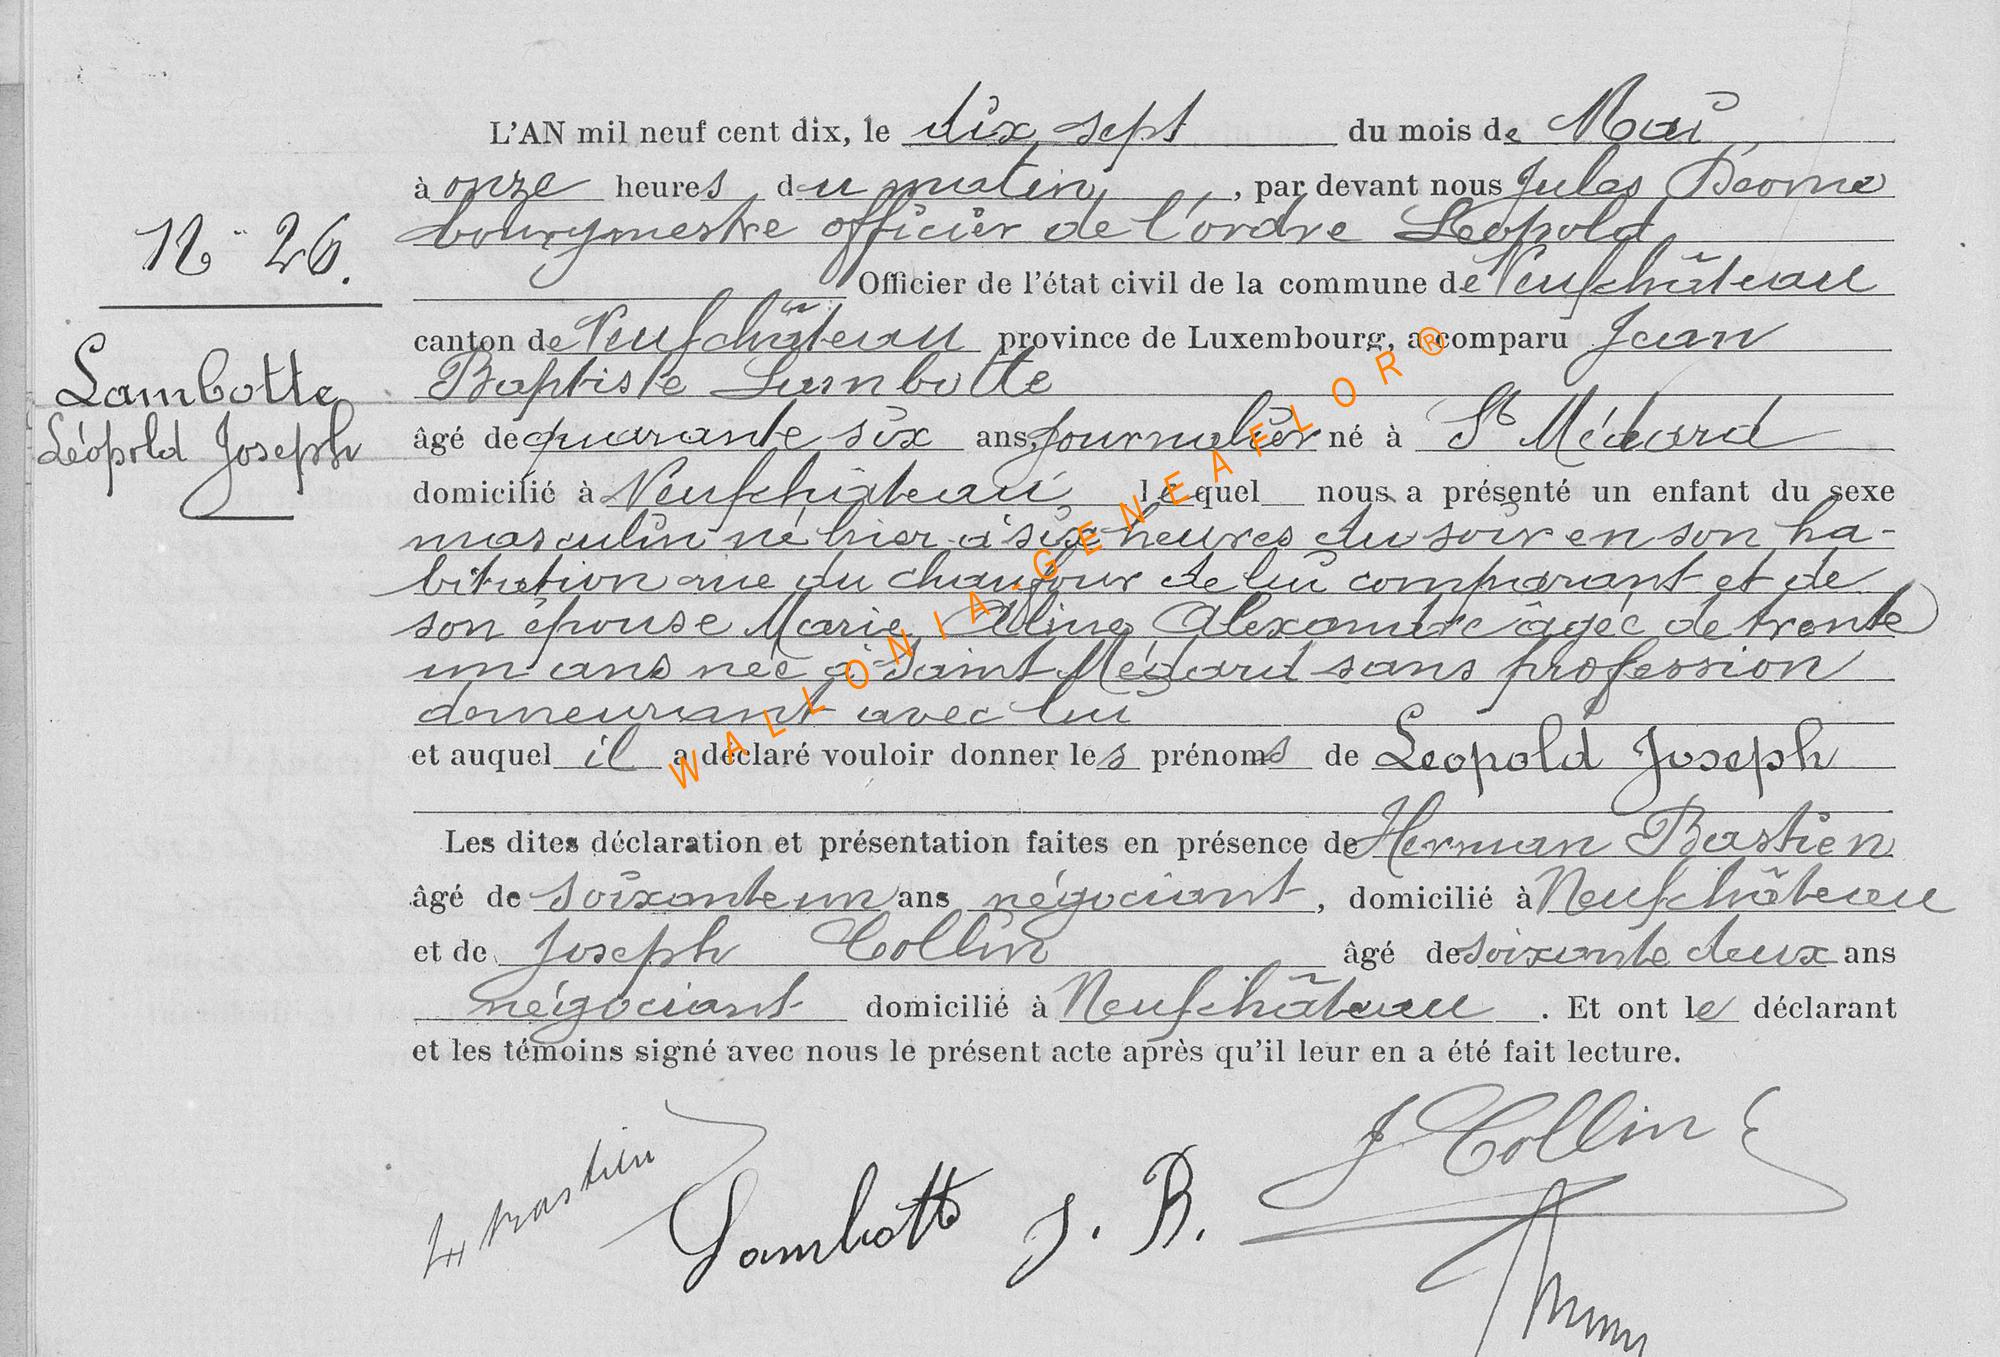 L'AN mil neuf cent dix, le dix sept du mois de Mai
à onze heures du matin, par devant nous Jules Déome
bourgmestre officier de l'ordre Léopold
N° 26.
Officier de l'état civil de la commune de Neufchâteau
canton de Neufchâteau province de Luxembourg, a comparu Jean
Baptiste Lambotte
Lambotte
Léopold Joseph
âgé de quarante six ans, journalier né à St Médard
domicilié à Neufchâteau lequel nous a présenté un enfant du sexe
masculin né hier à six heures du soir en son ha-
bitation rue du chaufour de lui comparant et de
son épouse Marie Aline Alexandre âgée de trente
un ans née à Saint Médard sans profession
demeurant avec lui
et auquel il a déclaré vouloir donner les prénoms de Léopold Joseph
Les dites déclaration et présentation faites en présence de Herman Bastien
âgé de soixante un ans négociant, domicilié à Neufchâteau
et de Joseph Collin âgé de soixante deux ans
négociant domicilié à Neufchâteau. Et ont le déclarant
et les témoins signé avec nous le présent acte après qu'il leur en a été fait lecture.
H Bastien
Lambotte J. B.
J Collin
WALLONIA-GENEAFLOR®